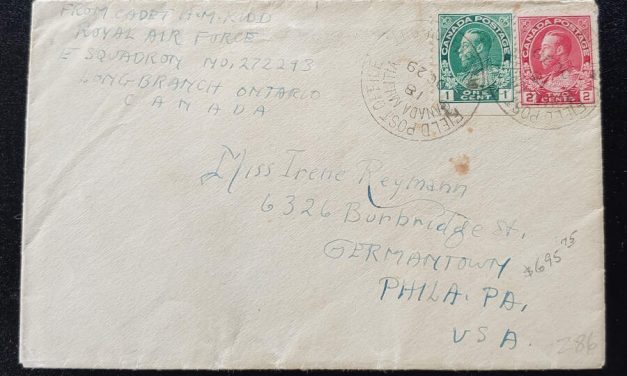 FROM CADET H.M. KIDD
ROYAL AIR FORCE
E SQUADRON NO, 272293
LONG BRANCH ONTARIO
CANADA
CANADA POSTAGE
1 ONE CENT 1
CANADA POSTAGE
2 CENTS 2
FIELD POST OFFICE
18
29
CANADA MILITIA
FIELD POST
Miss Irene Reymann
6326 Burbridge St,
GERMANTOWN
PHILA. PA,
USA.
$695.75
286